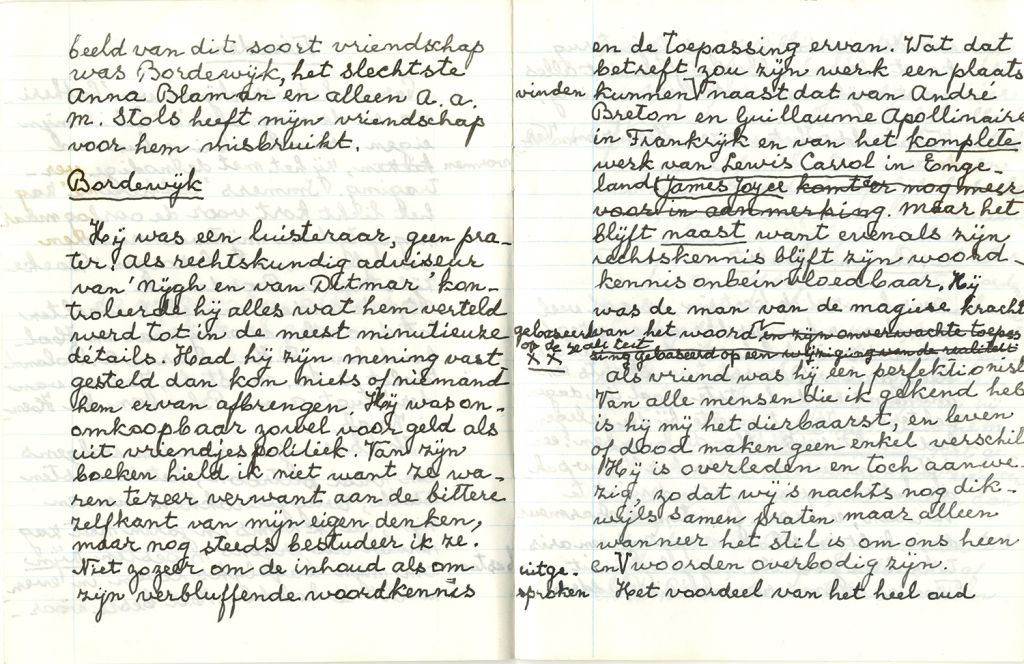 beeld van dit soort vriendschap
was Bordewijk, het slechtste
Anna Blaman en alleen A. a.
m. Stols heeft mijn vriendschap
voor hem misbruikt.
Bordewijk
Hij was een luisteraar, geen pra-
ter! Als rechtskundig adviseur
van 'Nijgh en van Ditmar' kon-
troleerde hij alles wat hem verteld
werd tot in de meest minutieuze
détails. Had hij zijn mening vast
gesteld dan kon niets of niemand
hem ervan afbrengen. Hij was on-
omkoopbaar zowel voor geld als
uit vriendjespolitiek. Van zijn
boeken hield ik niet want ze wa-
ren te zeer verwant aan de bittere
zelfkant van mijn eigen denken,
maar nog steeds bestudeer ik ze.
Niet zozeer om de inhoud als om
zijn verbluffende woordkennis
en de toepassing ervan. Wat dat
betreft zou zijn werk een plaats
vinden
kunnen V naast dat van André
Breton en Guillaume Apollinaire
in Frankrijk en van het komplete
werk van Lewis Carrol in Enge-
land (James Joyce komt er nog meer
voor in aanmerking. Maar het
blijft naast want evenals zijn
rechtskennis blijft zijn woord-
kennis onbeïnvloedbaar. Hij
was de man van de magiese kracht
gebaseerd
van het woord V in zijn onverwachte toepas
op de realiteit
X X
sing gebaseerd op een wijziging van de realiteit
Als vriend was hij een perfektionist
Van alle mensen die ik gekend heb
is hij mij het dierbaarst, en leven
of dood maken geen enkel verschil
Hij is overleden en toch aanwe-
zig, zodat wij 's nachts nog dik-
wijls samen praten maar alleen
wanneer het stil is om ons heen
uitge-
sproken
en V woorden overbodig zijn.
Het voordeel van het heel oud